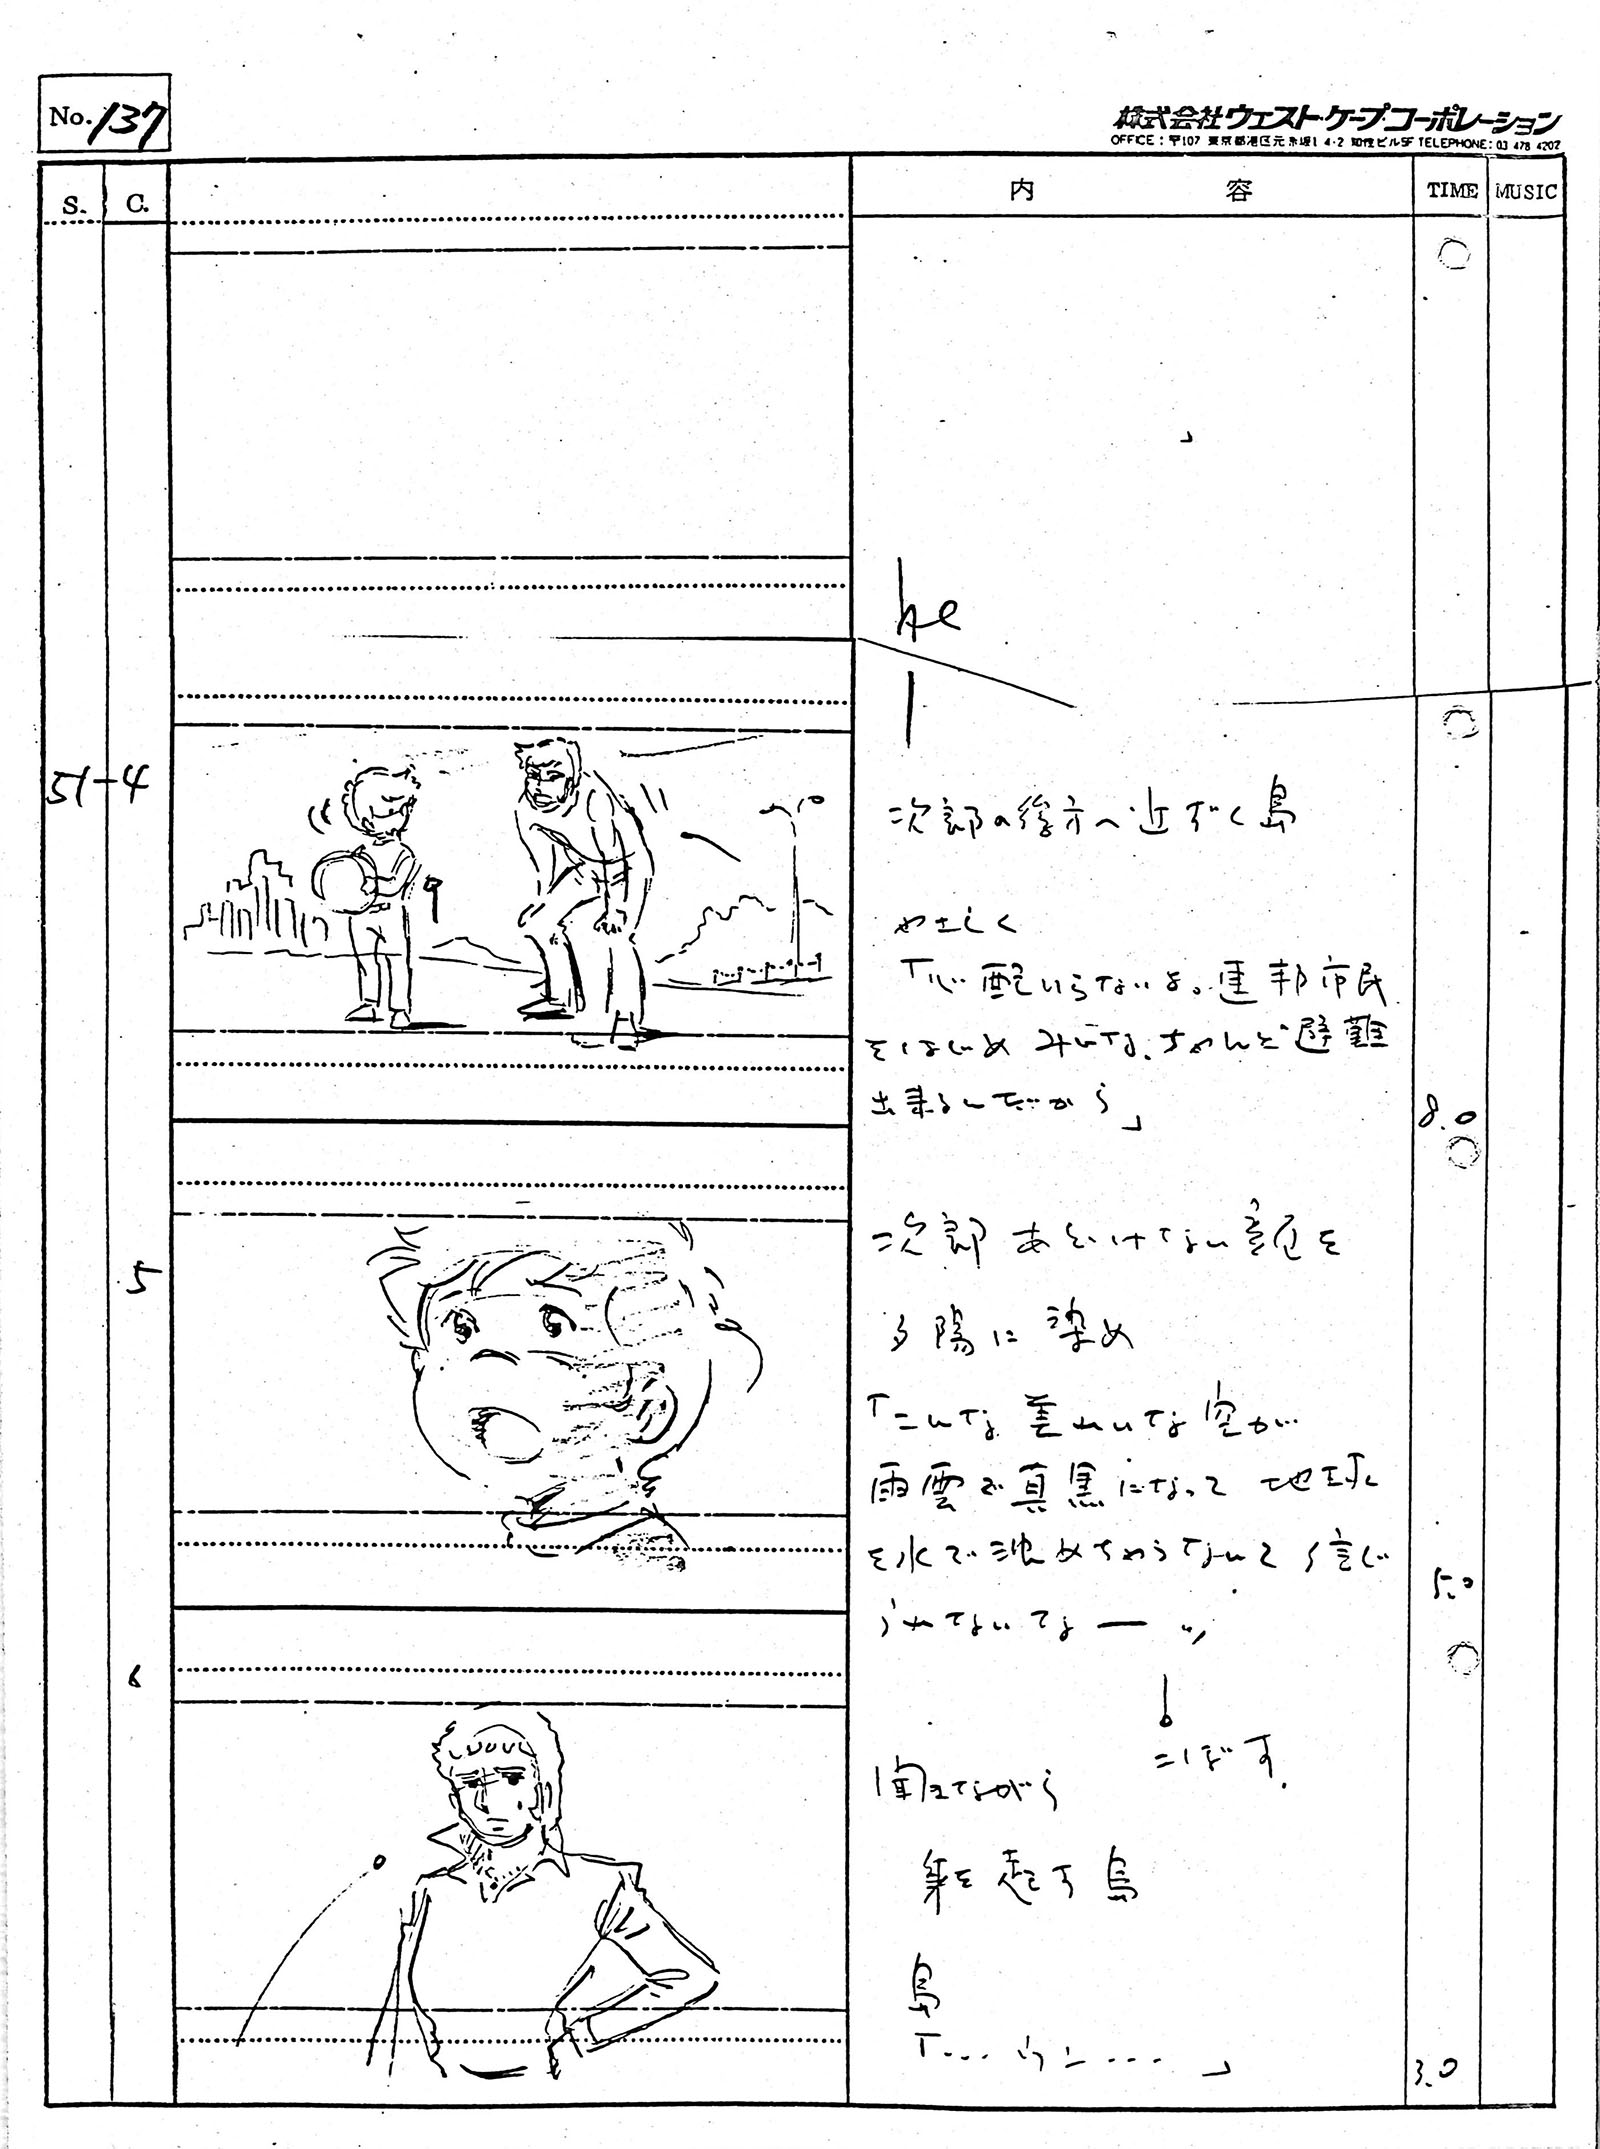 No. 137
株式会社ウェスト・ケープ・コーポレーション
OFFICE : 〒107 東京都港区元赤坂1 4-2 知性ビル5F TELEPHONE: 03 478 4202
S. C. 内容 TIME MUSIC
51-4
次郎の後方へ近ずく島
やさしく
「心配いらないよ。連邦市民
をはじめ みんな、ちゃんと避難
出来るんだから」
8.0
5
次郎 あどけない顔を
夕陽に染め
「こんな差れいな空が
雨雲で真黒になって 地球
を水で沈めちゃうなんて 信じ
られないなー
5.0
こぼす.
6
聞きながら
身を起す島
島
「... ウン ...」
3.0